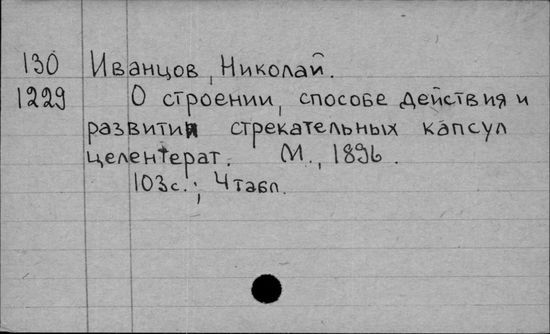 130 Иванцов, Николай.
1229 О строении, способе действия и
развития стрекательных капсул
целентерат. М., 1896.
103с.; 4табл.